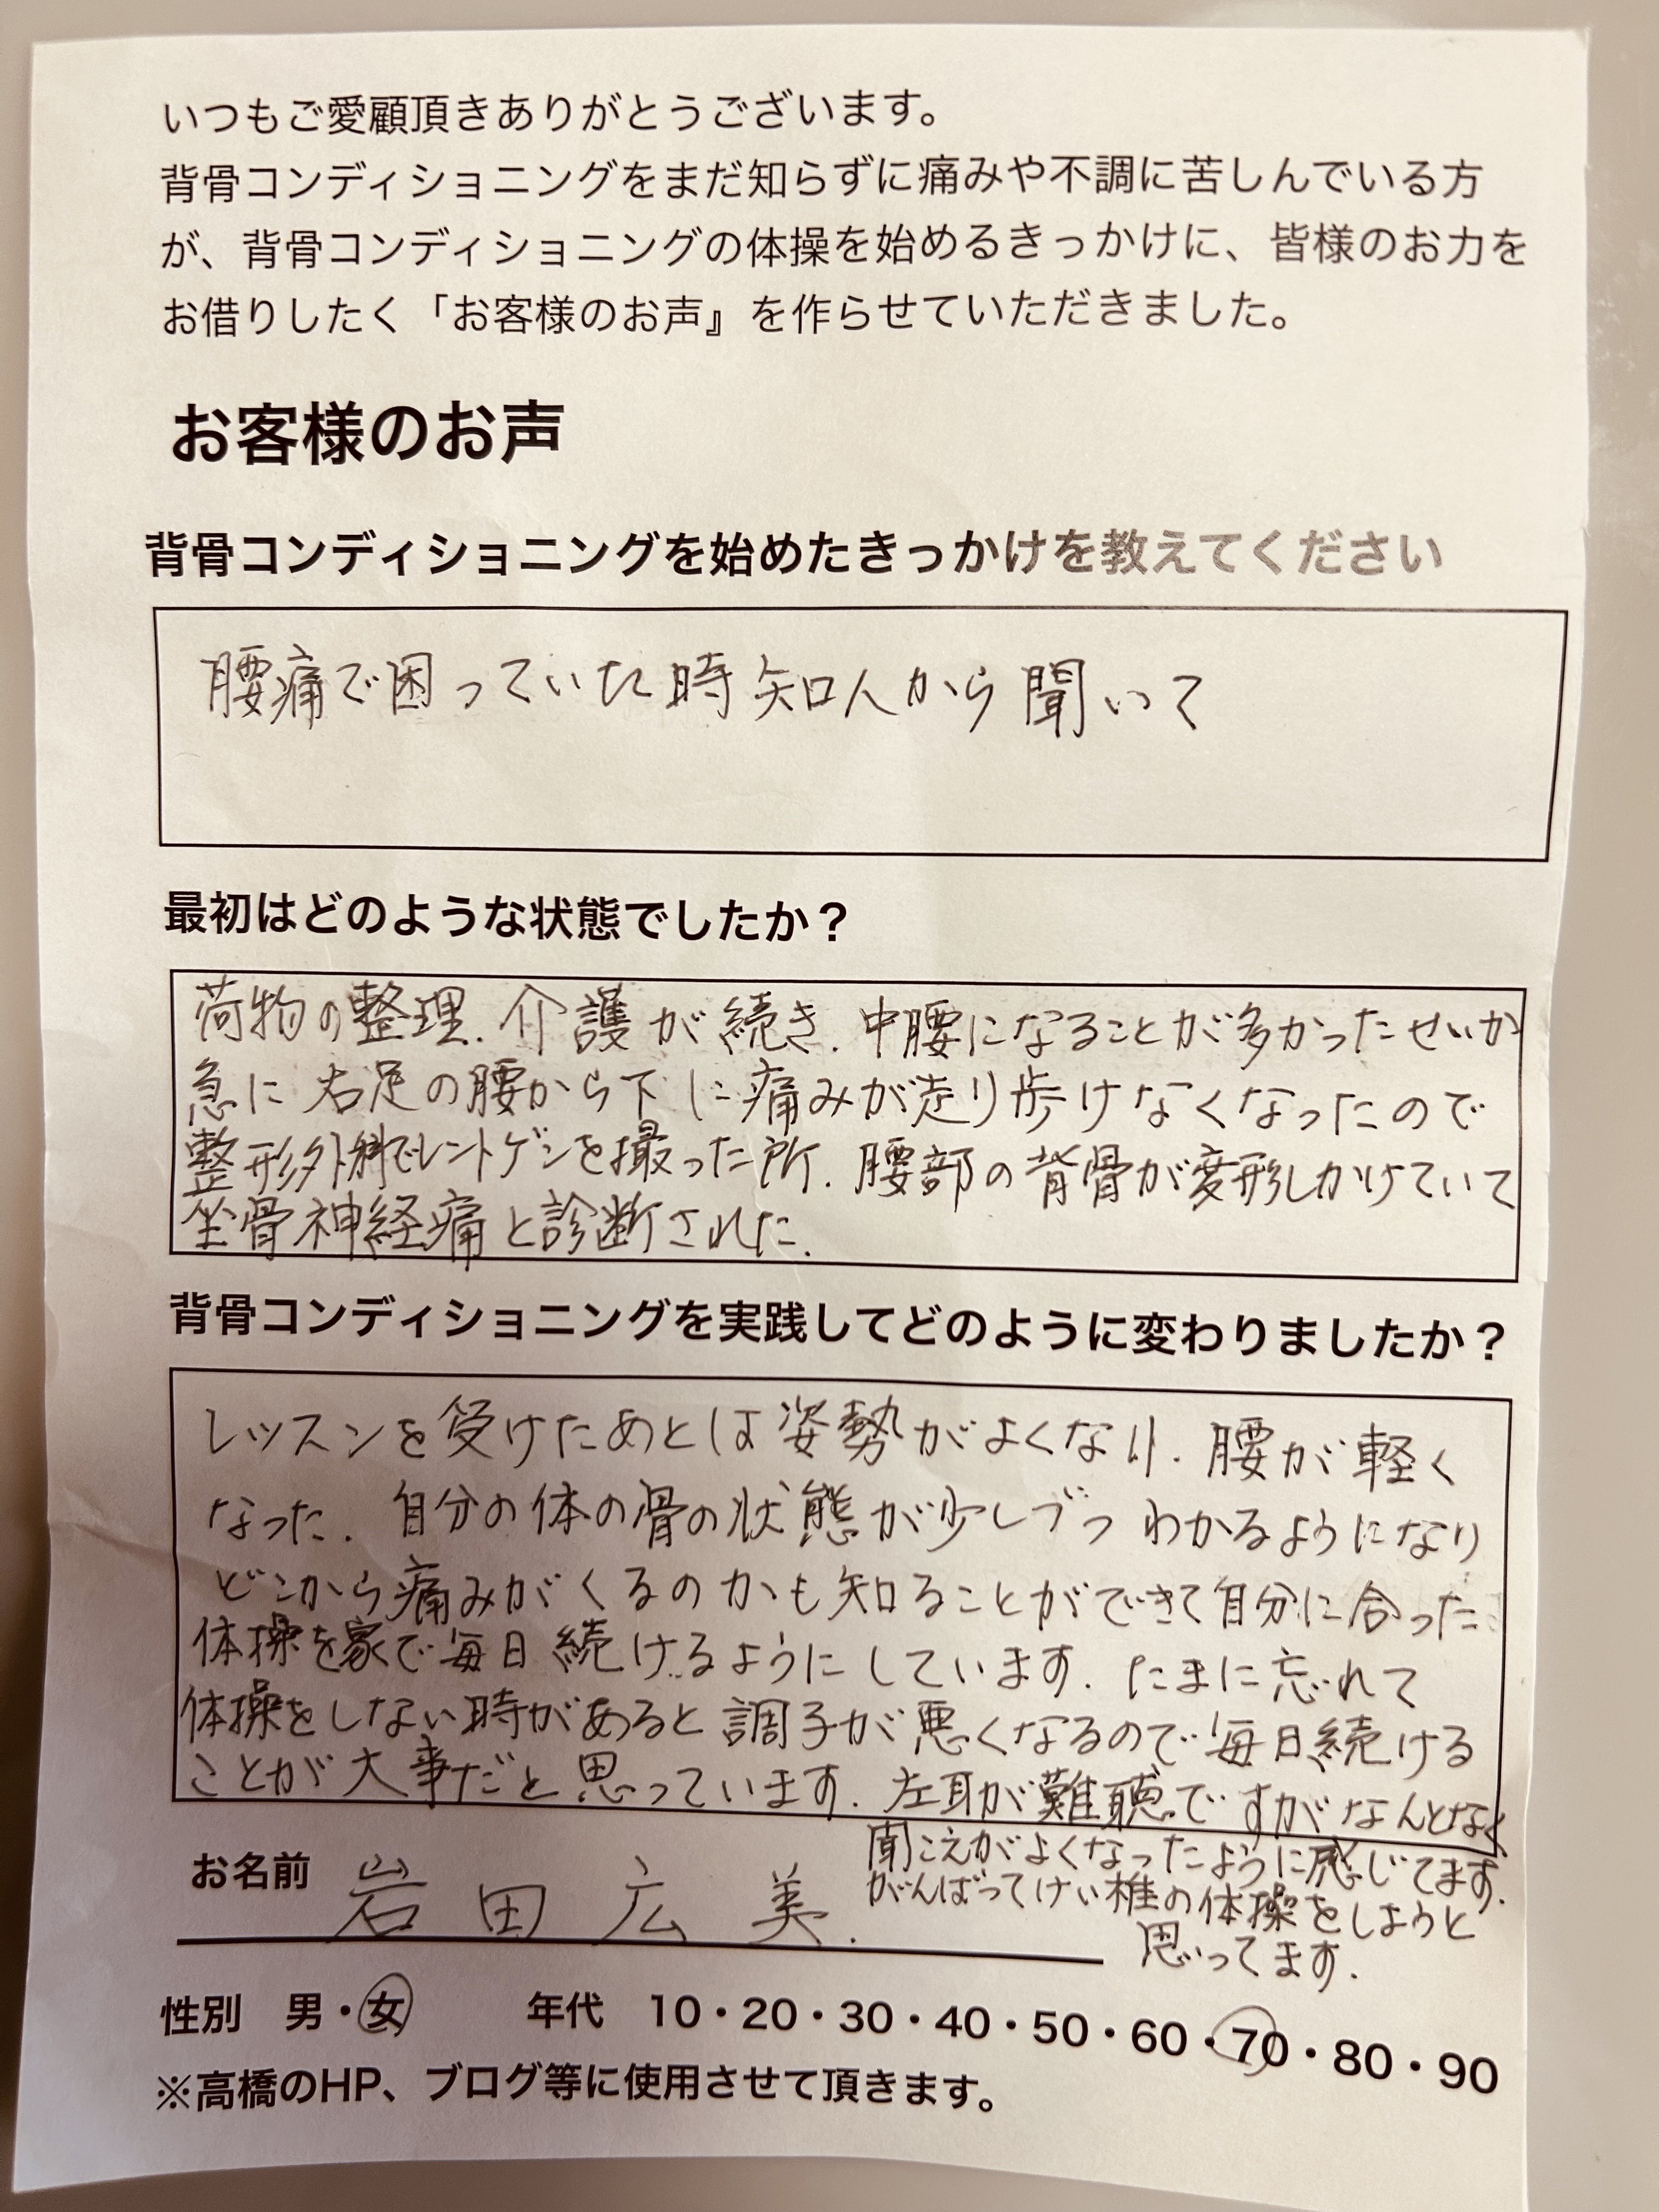 いつもご愛顧頂きありがとうございます。
背骨コンディショニングをまだ知らずに痛みや不調に苦しんでいる方
が、背骨コンディショニングの体操を始めるきっかけに、皆様のお力を
お借りしたく「お客様のお声』を作らせていただきました。
お客様のお声
背骨コンディショニングを始めたきっかけを教えてください
腰痛で困っていた時知人から聞いて
最初はどのような状態でしたか？
荷物の整理.介護が続き.中腰になることが多かったせいか
急に右足の腰から下に痛みが走り歩けなくなったので
整形外科でレントゲンを撮った所.腰部の背骨が変形しかけていて
坐骨神経痛と診断された.
背骨コンディショニングを実践してどのように変わりましたか？
レッスンを受けたあとは姿勢がよくなり.腰が軽く
なった.自分の体の骨の状態が少しづつわかるようになり
どこから痛みがくるのかも知ることができて自分に合った
体操を家で毎日続けるようにしています.たまに忘れて
体操をしない時があると調子が悪くなるので毎日続ける
ことが大事だと思っています.左耳が難聴ですがなんとなく
聞こえがよくなったように感じてます.
がんばってけい椎の体操をしようと
思ってます.
お名前 岩田広美.
性別 男・女 年代 10・20・30・40・50・60・70・80・90
※高橋のHP、ブログ等に使用させて頂きます。